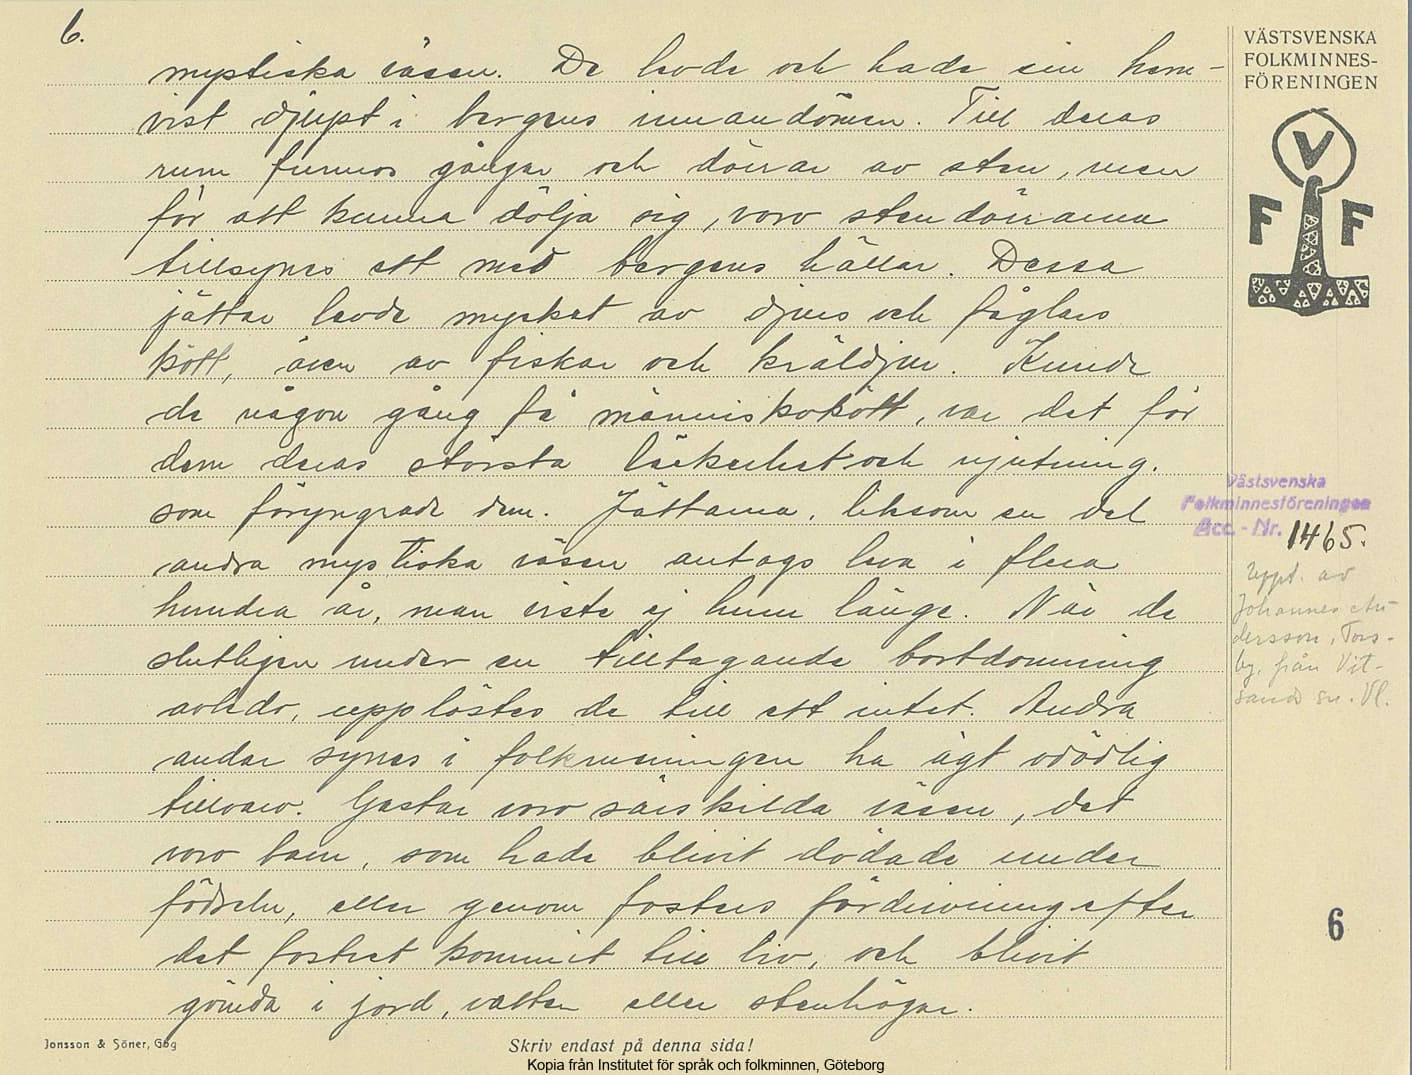 6.
VÄSTSVENSKA
FOLKMINNES-
FÖRENINGEN
V
F F
mystiska väsen. De levde och hade sin hem-
vist djupt i bergens innandömen. Till deras
rum funnos gångar och dörrar av sten, men
för att kunna dölja sig, voro stendörrarna
tillsynes ett med bergens hällar. Dessa
jättar levde mycket av djurs och fåglars
kött, även av fiskar och kräldjur. Kunde
de någon gång få människokött, var det för
dem deras största läckerhet och njutning.
som föryngrade dem. Jättarna, liksom en del
andra mystiska väsen antogs leva i flera
hundra år, man visste ej huru länge. När de
slutligen under en tilltagande bortdomning
avledo, upplöstes de till ett intet. Andra
andar synes i folkmeningen ha ägt odödlig
tillvaro. Gastar voro särskilda väsen, det
voro barn, som hade blivit dödade under
födseln, eller genom fosters fördrivning efter
det fostret kommit till liv, och blivit
gömda i jord, vatten eller stenhögar.
Västsvenska
Folkminnesföreningen
Acc. - Nr. 1465.
Uppt. av
Johannes An-
dersson, Tors-
by, från Vit-
sands sn. Vl.
6
Jonsson & Söner, Gbg
Skriv endast på denna sida!
Kopia från Institutet för språk och folkminnen, Göteborg